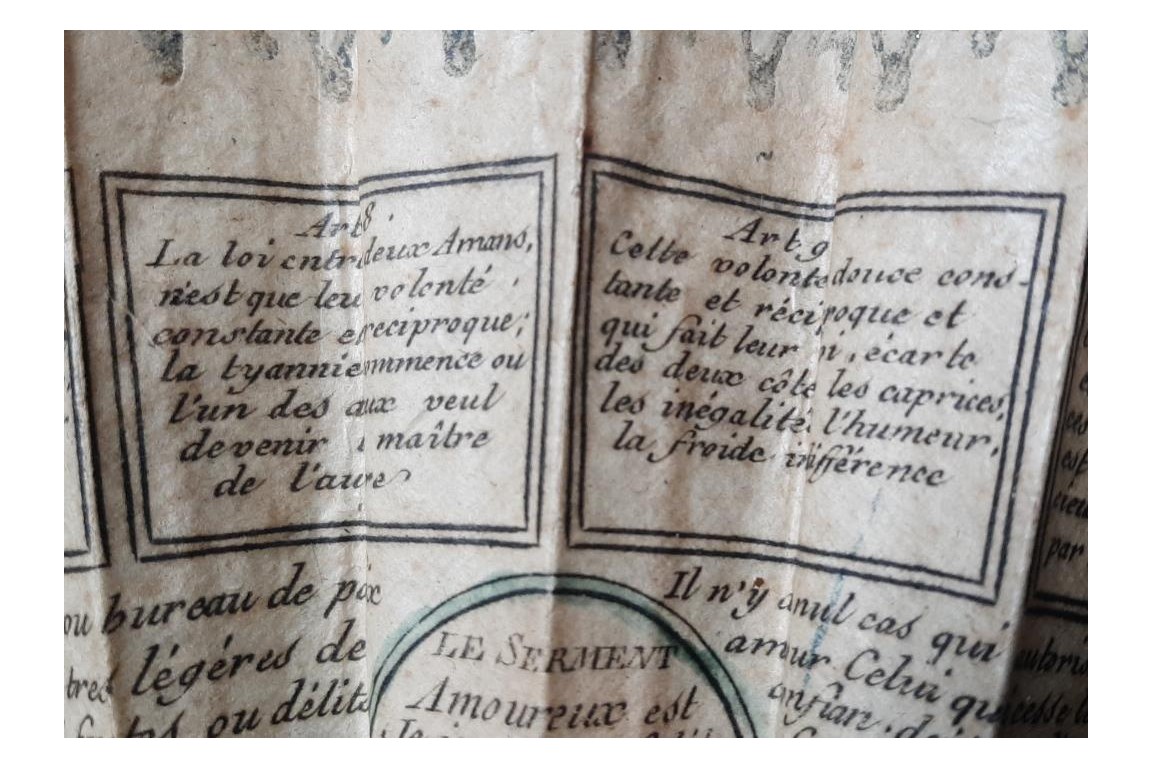 Art 8
La loi entre deux Amans,
n'est que leur volonté
constante et reciproque;
la tyannie commence ou
l'un des deux veul
devenir maître
de l'autre
Art 9
Cette volonté douce cons-
tante et récipoque et
qui fait leur écarte
des deux côte les caprices,
les inégalité l'humeur,
la froide indifférence
ou bureau de
légéres de
ou délits
LE SERMENT
Amoureux est
Il n'y a nul cas qui
amour Celui qui
par